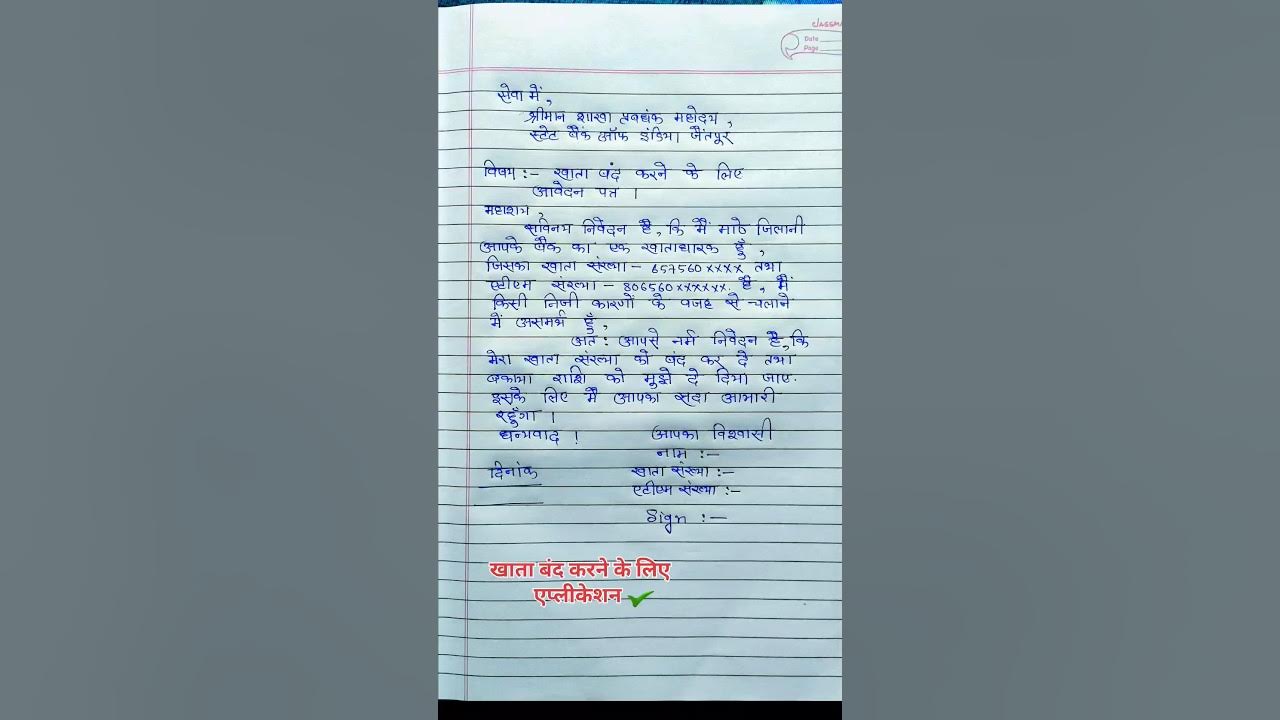 classma
Date
Page
सेवा में,
श्रीमान शाखा प्रबधंक महोदय,
स्टेट बैंक ऑफ इंडिया जैंतपूर
विषय :- खाता बंद करने के लिए
आवेदन पत्र ।
महाशय,
सविनय निवेदन है, कि मैं मो० जिलानी
आपके बैंक का एक खाताधारक हूँ,
जिसका खाता संख्या - 657560xxxx तथा
एटीएम संख्या - 806560xxxxxx. है, मैं
किसी निजी कारणों के वजह से चलाने
में असमर्थ हूँ,
अत: आपसे नर्म निवेदन है, कि
मेरा खाता संख्या को बंद कर दे तथा
बकाया राशि को मुझे दे दिया जाए.
इसके लिए मैं आपका सदा आभारी
रहूँगा ।
धन्यवाद ! आपका विश्वासी
नाम :-
दिनांक खाता संख्या :-
एटीएम संख्या :-
Sign :-
खाता बंद करने के लिए
एप्लीकेशन